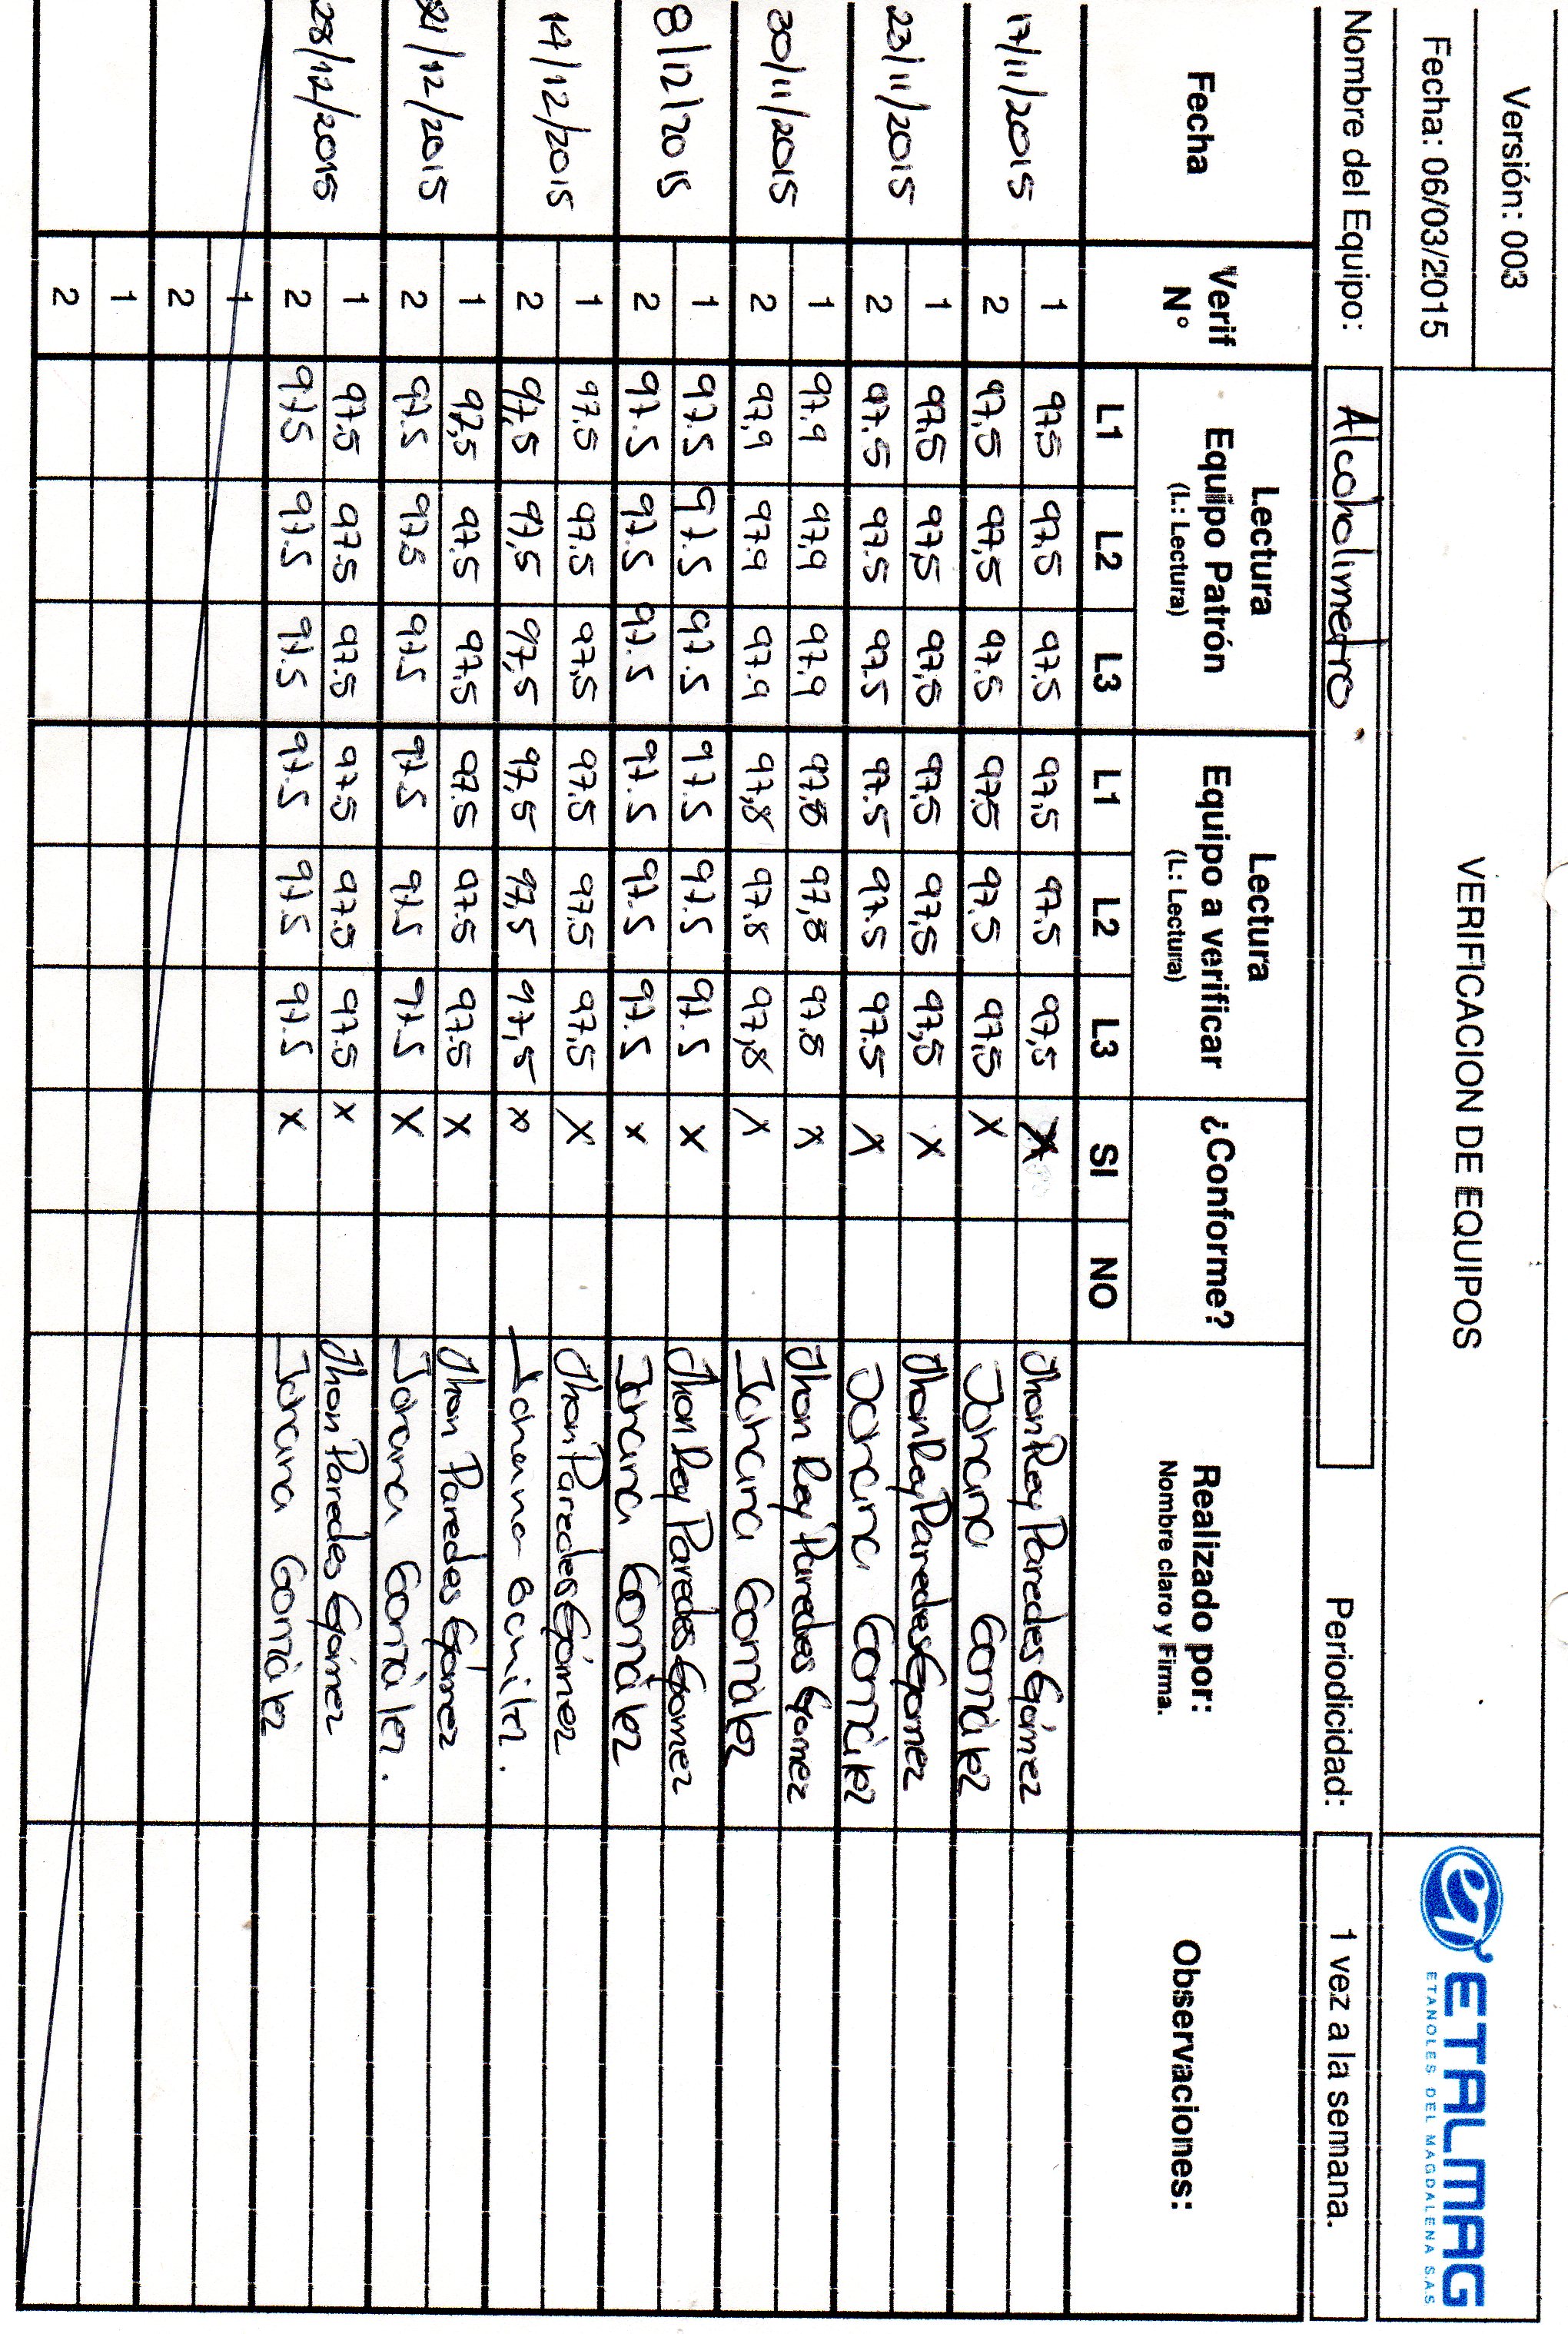 Versión: 003
Fecha: 06/03/2015
VERIFICACION DE EQUIPOS
ETALMAG
ETANOLES DEL MAGDALENA S.A.S
Nombre del Equipo: Alcoholimetro Periodicidad: 1 vez a la semana.
Fecha Verif N° Lectura Equipo Patrón (L: Lectura) Lectura Equipo a verificar (L: Lectura) ¿Conforme? Realizado por: Nombre claro y Firma. Observaciones:
L1 L2 L3 L1 L2 L3 SI NO
17/11/2015 1 97,5 97,5 97,5 97,5 97.5 97,5 X Jhon Rey Paredes Gómez
2 97,5 97,5 97.5 97,5 97.5 97,5 X Johana González
23/11/2015 1 97,5 97,5 97,5 97,5 97,5 97,5 X Jhon Rey Paredes Gomez
2 97.5 97.5 97.5 97.5 97.5 97.5 X Johana González
30/11/2015 1 97.9 97,9 97,9 97,8 97,8 97.8 X Jhon Rey Paredes Gomez
2 97,9 97.9 97.9 97,8 97.8 97,8 X Johana González
8/12/2015 1 97.5 97.5 97.5 97.5 97.5 97.5 X Jhon Rey Paredes Gomez
2 97.5 97.5 97.5 97.5 97.5 97.5 X Johana González
14/12/2015 1 97.5 97.5 97,5 97.5 97.5 97,5 X Jhon Paredes Gómez
2 97,5 97,5 97,5 97,5 97,5 97,5 X Johana
21/12/2015 1 97,5 97,5 97,5 97.5 97.5 97.5 X Jhon Paredes Gómez
2 97.5 97.5 97.5 97.5 97.5 97.5 X Johana González.
28/12/2015 1 97.5 97.5 97.5 97.5 97.5 97.5 X Jhon Paredes Gómez
2 97.5 97.5 97.5 97.5 97.5 97.5 X Johana González
1
2
1
2